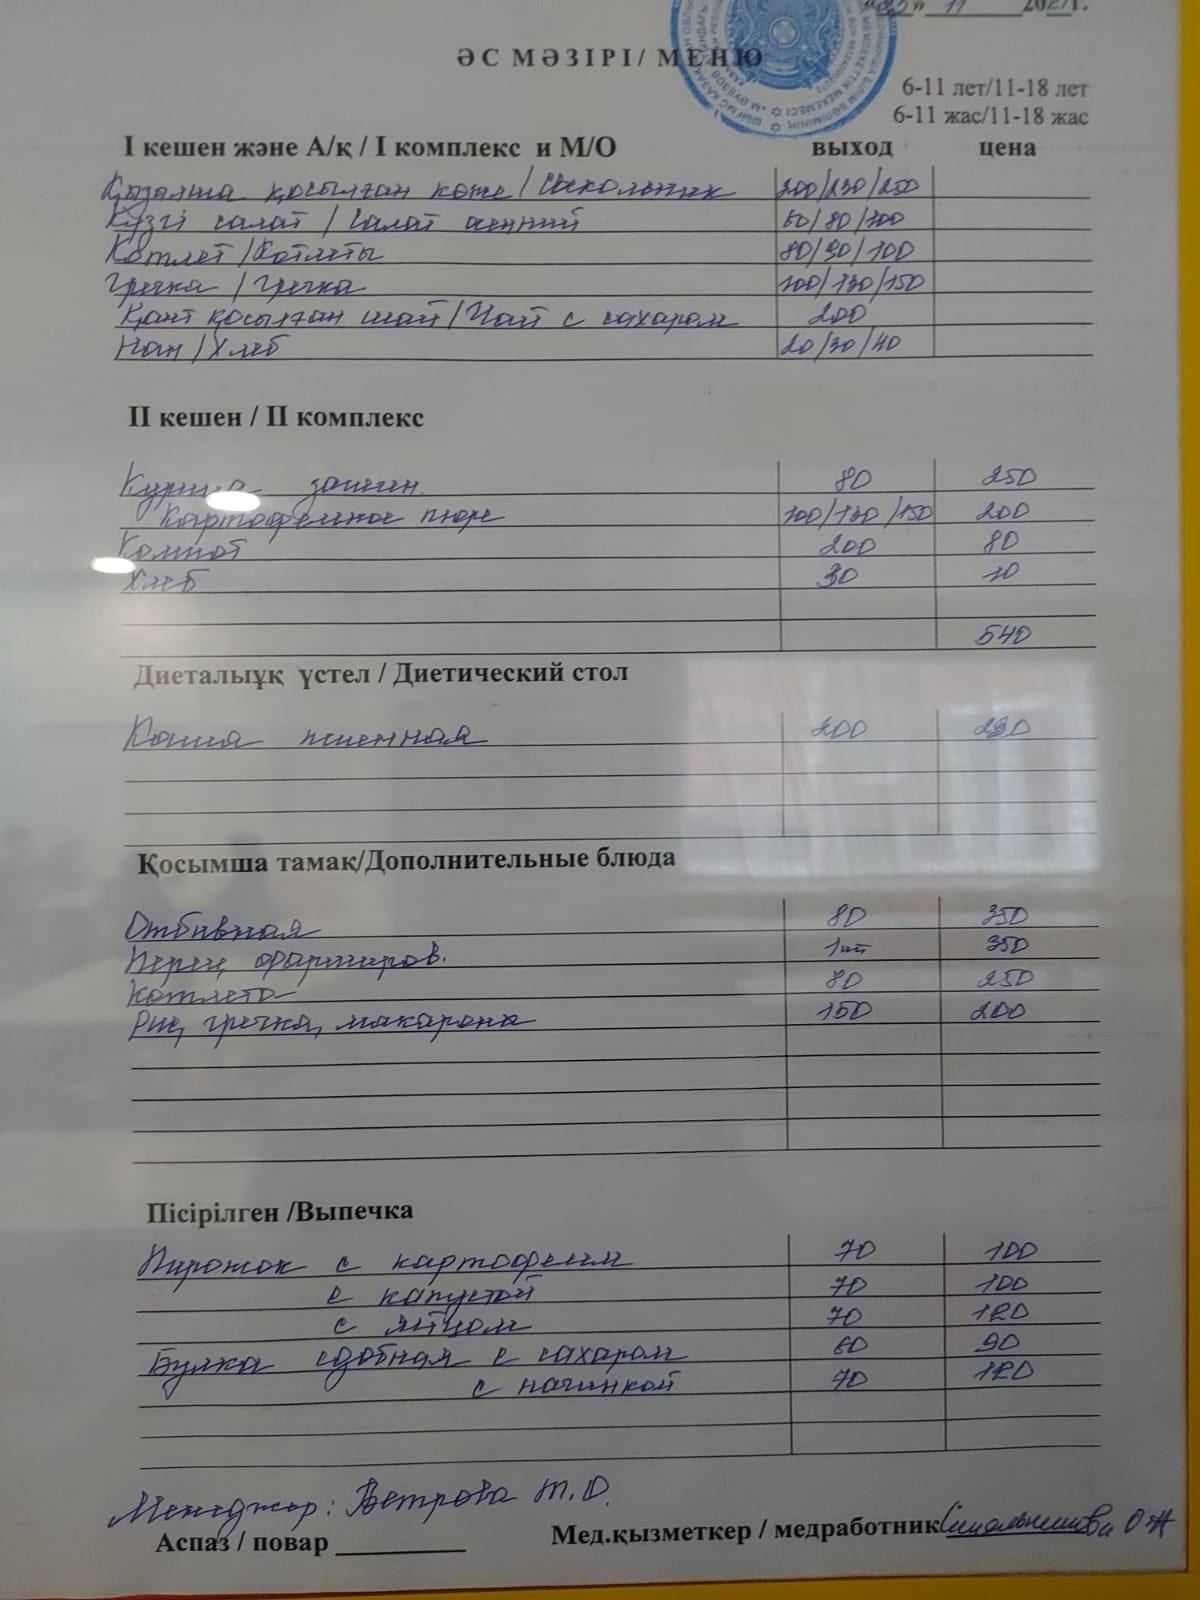 11 202 г.
ӘС МӘЗІРІ / МЕНЮ
6-11 лет/11-18 лет
6-11 жас/11-18 жас
І кешен және А/қ / І комплекс и М/О выход цена
қосылған көже / 200/230/250
Күзгі салат / Салат осенний 60/80/100
Котлет / Котлеты 80/90/100
Гречка / Гречка 100/130/150
Қант қосылған шай / Чай с сахаром 200
Нан / Хлеб 20/30/40
ІІ кешен / ІІ комплекс
Курица запечен. 80 250
Картофельное пюре 100/130/150 200
Компот 200 80
Хлеб 30 10
540
Диеталыұқ үстел / Диетический стол
Каша пшенная 200
Қосымша тамақ/Дополнительные блюда
Отбивная 80 350
Перец фарширов. 1шт 350
Котлета 80 250
Рис, гречка, макароны 150 200
Пісірілген /Выпечка
Пирожок с картофелем 70 100
с капустой 70 100
с яйцом 70 120
Булка сдобная с сахаром 60 90
с начинкой 70 120
Менеджер: Ветрова Т.О.
Аспаз / повар
Мед.қызметкер / медработник